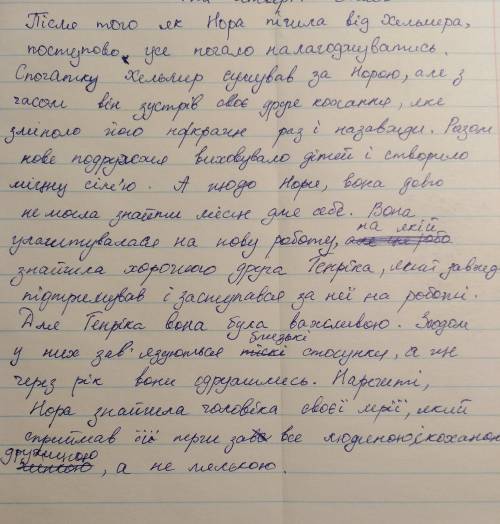 Після того як Нора пішла від Хельмера,
поступово, усе почало налагоджуватись.
Спочатку Хельмер сумував за Норою, але з
часом він зустрів своє друге кохання, яке
змінило його на краще раз і назавжди. Разом
нове подружжя виховувало дітей і створило
міцну сім'ю. А щодо Нори, вона довго
не могла знайти місце для себе. Вона
улаштувалася на нову роботу, на якій
знайшла хорошого друга Генріка, який завжди
підтримував і заступався за неї на роботі.
Для Генріка вона була важливою. Згодом
у них зав'язуються близькі стосунки, а ще
через рік вони одружились. Нарешті,
Нора знайшла чоловіка своєї мрії, який
сприймав її перш за все людиною, коханою
дружиною, а не лялькою.